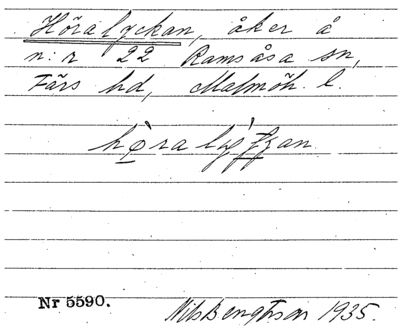 Höralyckan, åker å
n:r 22 Ramsåsa sn,
Färs hd, Malmöh. l.
Nr 5590.
Nils Bengtsson 1935.